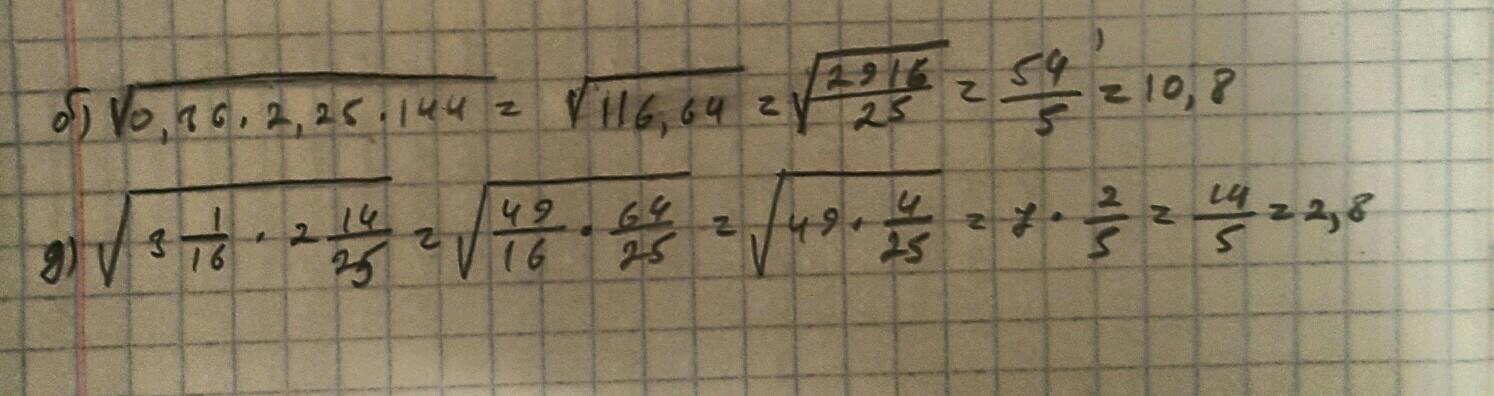 б) √0,36 · 2,25 · 144 = √116,64 = √2916/25 = 54/5 = 10,8
д) √3 1/16 · 2 14/25 = √49/16 · 64/25 = √49 · 4/25 = 7 · 2/5 = 14/5 = 2,8